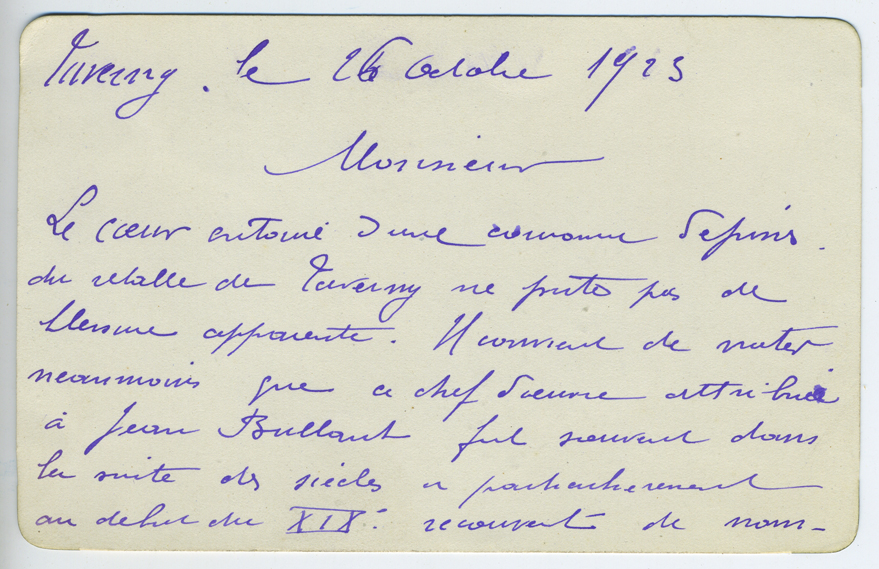 Taverny. le 26 Octobre 1923
Monsieur
Le cœur entouré d'une couronne d'épines
du retable de Taverny ne porte pas de
blessure apparente. Il convient de noter
neanmoins que ce chef d'œuvre attribué
à Jean Bullant fut souvent dans
la suite des siècles et particulierement
au debut du XIXe recouvert de nom-